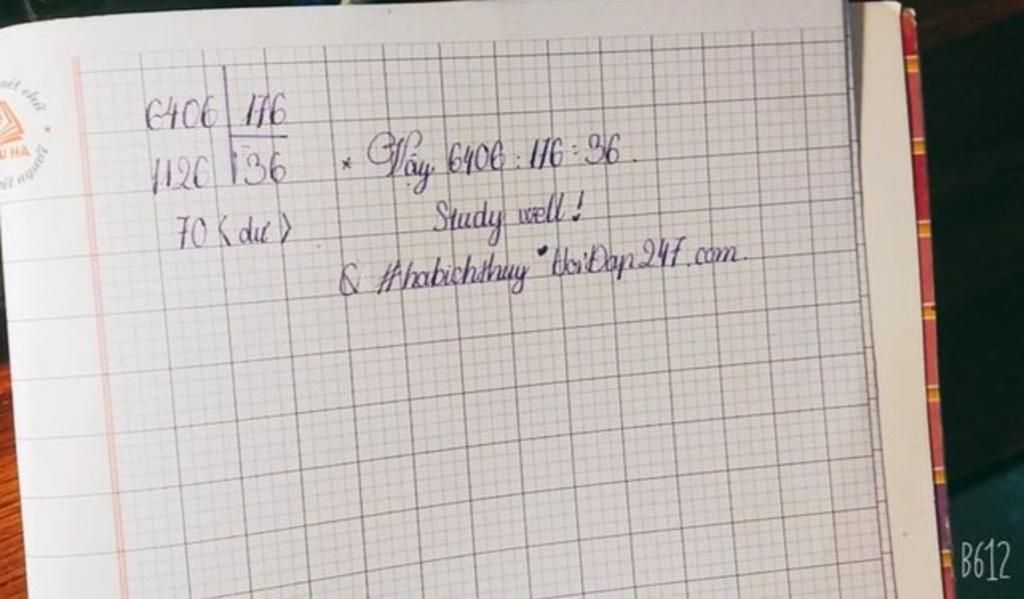 6406 176
1126 36
70 (dư)
* Vậy 6406 : 176 = 36.
Study well!
& #habichthuy * HoiDap247.com.
nét chữ
HA
nét người
B612